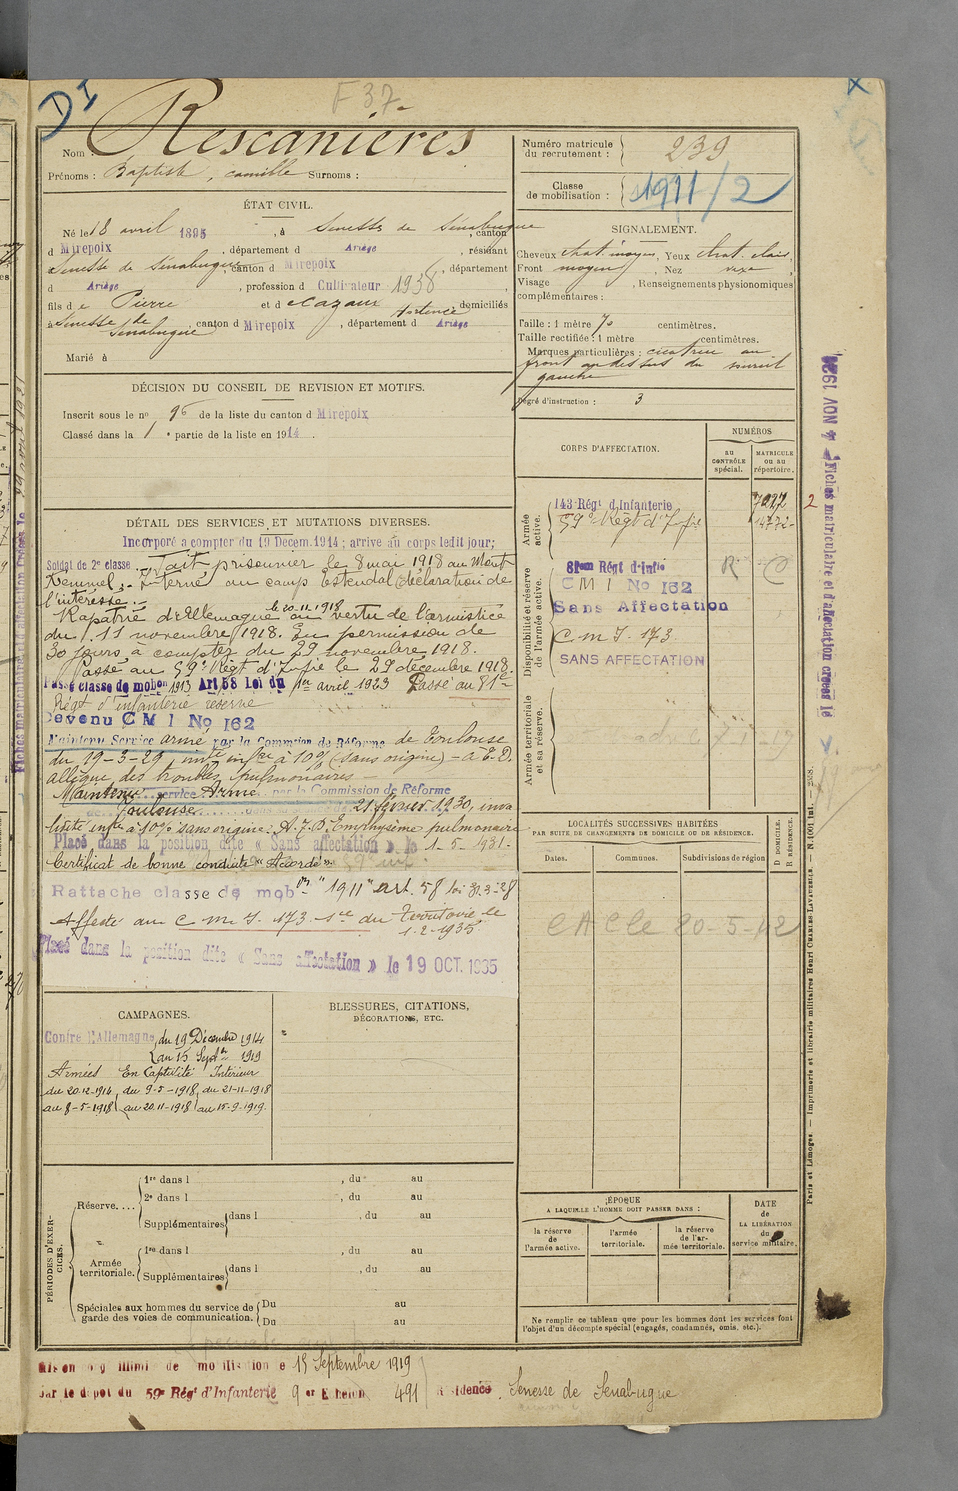 DI
F 37-
Nom : Rescanières
Prénoms : Baptiste, camille Surnoms :
Numéro matricule du recrutement : 239
Classe de mobilisation : 1911/2
ÉTAT CIVIL.
Né le 18 avril 1895, à Senesse de Sénabugue, canton
d Mirepoix, département d Ariège, résidant
Senesse de Sénabugue, canton d Mirepoix, département
d Ariège, profession d Cultivateur 1938
fils d e Pierre et d e Cazaux Hortence domiciliés
à Senesse de Sénabugue, canton d Mirepoix, département d Ariège
Marié à
SIGNALEMENT.
Cheveux chat. moyen, Yeux chat. clair
Front moyen, Nez
Visage , Renseignements physionomiques
complémentaires :
Taille : 1 mètre 70 centimètres.
Taille rectifiée : 1 mètre centimètres.
Marques particulières : cicatrice au
front au dessus du sourcil
gauche
Degré d'instruction : 3
DÉCISION DU CONSEIL DE REVISION ET MOTIFS.
Inscrit sous le no 96 de la liste du canton d Mirepoix
Classé dans la 1e partie de la liste en 1914.
CORPS D'AFFECTATION.
NUMÉROS
au CONTRÔLE spécial.
MATRICULE ou au répertoire.
Armée active.
143 Régt d'Infanterie
59e Régt d'Infie
2
Disponibilité et réserve de l'armée active.
81em Régt d'Infie
R C
C M I No 162
Sans Affectation
C m I. 173
SANS AFFECTATION
Armée territoriale et sa réserve.
DÉTAIL DES SERVICES ET MUTATIONS DIVERSES.
Incorporé à compter du 19 Décem. 1914 ; arrivé au corps ledit jour;
Soldat de 2e classe. Fait prisonnier le 8 mai 1918 au Mont
Kemmel. Interné au camp Estendal (Déclaration de
l'intéressé.-
Rapatrié d'Allemagne le 20-11-1918 en vertu de l'armistice
du 11 novembre 1918. En permission de
30 jours à compter du 29 novembre 1918.
Passé au 59e Régt d'Infie le 29 décembre 1918.
Passé classe de mobon 1913 Art 58 Loi du 1er avril 1923 Passé au 81e
Régt d'infanterie réserve
Devenu C M I No 162
Maintenu Service armé par la Commsion de Réforme de Toulouse
du 19-3-29, invté infre à 10% (sans origine) - à E.D.
allègue des troubles pulmonaires -
Maintenu service Armé par la Commission de Réforme
de Toulouse 21 février 1930, inva
lidité infre à 10% sans origine. A.J.B. Emphysème pulmonaire
Placé dans la position dite « Sans affectation » le 1-5-1931-
Certificat de bonne conduite "Accordé".
Rattaché classe de mobon "1911" art. 58 loi 31-3-28
Affecté au C m I. 173 - Sce du Territoire le
1-2-1935
Placé dans la position dite « Sans affectation » le 19 OCT. 1935
LOCALITÉS SUCCESSIVES HABITÉES
PAR SUITE DE CHANGEMENTS DE DOMICILE OU DE RÉSIDENCE.
D DOMICILE.
R RÉSIDENCE.
Dates.
Communes.
Subdivisions de région
20-5-42
CAMPAGNES.
Contre l'Allemagne, du 19 Décembre 1914
au 15 Septbre 1919
Armées En Captivité Intérieur
du 20-12-1914, du 9-5-1918, du 21-11-1918
au 8-5-1918, au 20-11-1918, au 15-9-1919.
BLESSURES, CITATIONS,
DÉCORATIONS, ETC.
PÉRIODES D'EXERCICES.
Réserve....
1re dans l , du au
2e dans l , du au
Supplémentaires dans l , du au
Armée territoriale.
1re dans l , du au
Supplémentaires dans l , du au
Spéciales aux hommes du service de
garde des voies de communication.
Du au
Du au
ÉPOQUE
A LAQUELLE L'HOMME DOIT PASSER DANS :
la réserve de l'armée active.
l'armée territoriale.
la réserve de l'armée territoriale.
DATE de LA LIBÉRATION du service militaire.
Ne remplir ce tableau que pour les hommes dont les services font
l'objet d'un décompte spécial (engagés, condamnés, omis, etc.).
Mis en congé illimité de mobilisation le 15 Septembre 1919
par le dépôt du 59e Régt d'Infanterie 9e Echelon 491 Résidence Senesse de Senabugue
Fiches matriculaire et d'affectation créées le 4 NOV 1924
Paris et Limoges. — Imprimerie et librairie militaires Henri CHARLES-LAVAUZELLE.